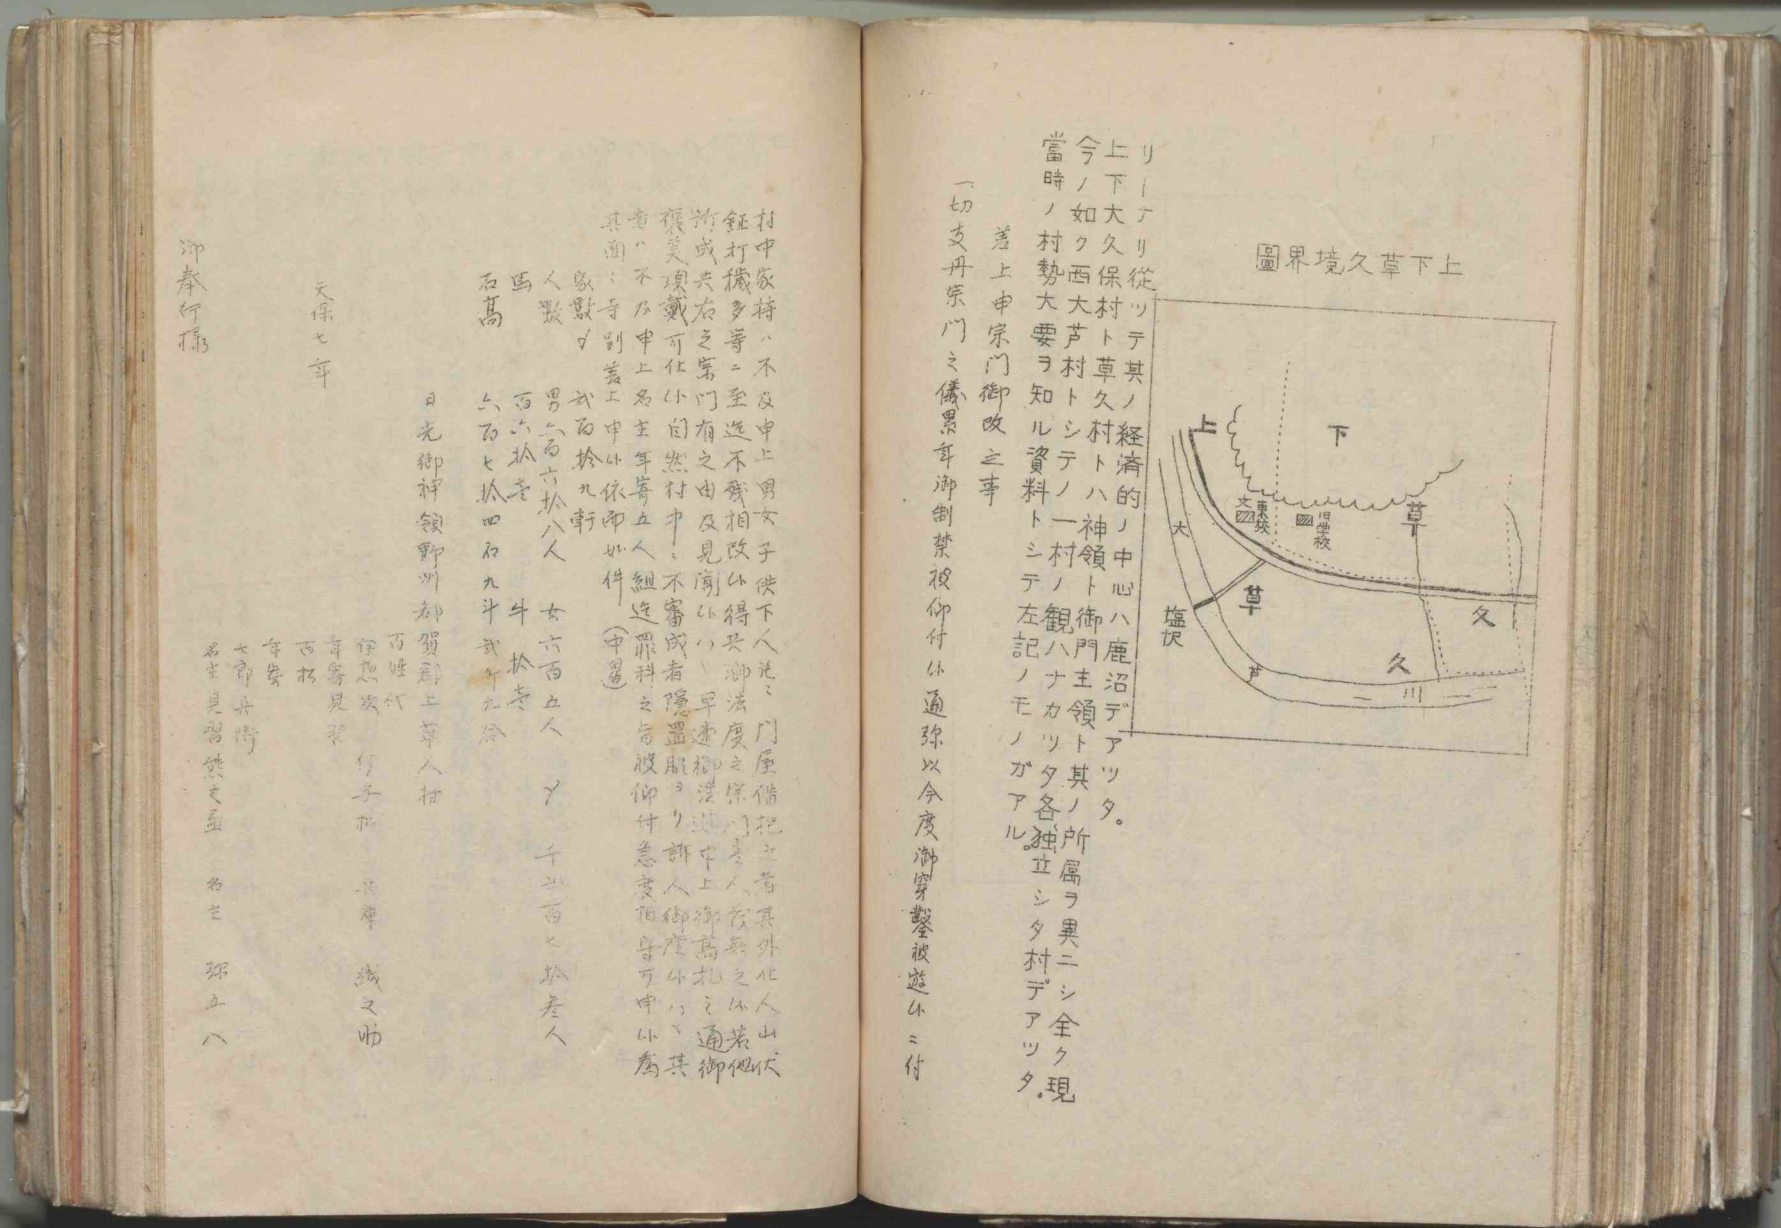 上下草久境界圖
上
下
草
文
東校
旧学校
大
草
塩沢
久
久
芦
川
リーナリ從ツテ其ノ経済的ノ中心ハ鹿沼デアツタ。
上下大久保村ト草久村トハ神領ト御門主領ト其ノ所属ヲ異ニシ全ク現
今ノ如ク西大芦村トシテノ一村ノ観ハナカツタ各独立シタ村デアツタ。
當時ノ村勢大要ヲ知ル資料トシテ左記ノモノガアル。
差上申宗門御改之事
一切支丹宗門之儀累年御制禁被仰付候通弥以今度御穿鑿被遊候ニ付
村中家持ハ不及申上男女子供下人迄門屋借地之者其外他人山伏
鉦打穢多等ニ至迄不残相改候得共御法度之宗門之人無之候若他
所成共右之宗門有之由及見聞候ハヽ早速御注進申上御高札之通御
褒美頂戴可仕候自然村中ニ不審成者隠置脇ヨリ訴人御座候ハヽ其
者ハ不及申上名主年寄五人組迄罪科之旨被仰付急度相守可申候為
其面ニ寺別差上申候依而如件（中畧）
家數〆 弐百拾九軒
人數 男六百六拾八人 女六百五人 〆 千弐百七拾参人
馬 百六拾壱 牛 拾壱
石高 六百七拾四石九斗弐升九合
日光御神領野州都賀郡上草久村
百姓代
年寄見習
百松
年寄
七郎兵衛
名主見習熊之亟 名主 弥五八
天保七年
御奉行様